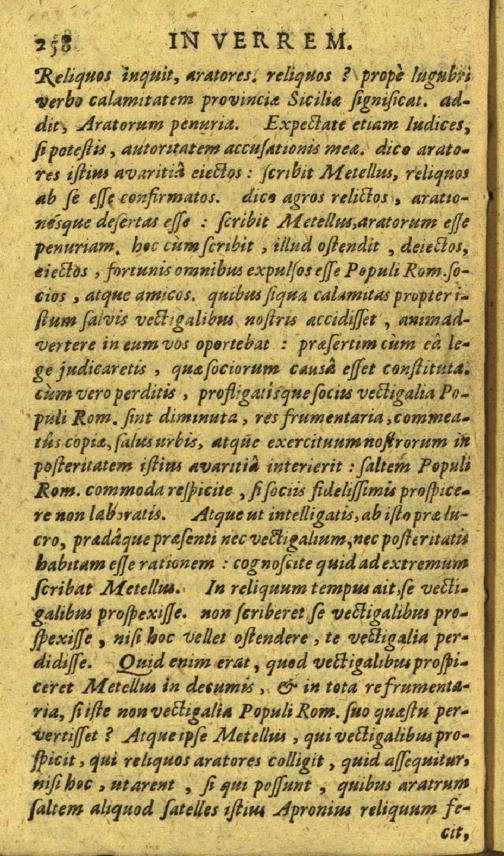 258 IN VERREM.
Reliquos inquit, aratores. reliquos ? propè lugubri
verbo calamitatem provinciæ Siciliæ ſignificat. ad-
dit, Aratorum penuria. Expectate etiam Iudices,
ſi poteſtis, autoritatem accuſationis meæ. dico arato-
res iſtius avaritiâ eiectos : ſcribit Metellus, reliquos
ab ſe eſſe confirmatos. dico agros relictos, aratio-
neſque deſertas eſſe : ſcribit Metellus, aratorum eſſe
penuriam. hoc cùm ſcribit, illud oſtendit, deiectos,
eiectos, fortunis omnibus expulſos eſſe Populi Rom. ſo-
cios, atque amicos. quibus ſiqua calamitas propter i-
ſtum ſalvis vectigalibus noſtris accidiſſet, animad-
vertere in eum vos oportebat : præſertim cùm eâ le-
ge judicaretis, quæ ſociorum causâ eſſet conſtituta.
cùm vero perditis, profligatiſque ſociis vectigalia Po-
puli Rom. ſint diminuta, res frumentaria, commea-
tûs copiæ, ſalus urbis, atque exercituum noſtrorum in
poſteritatem iſtius avaritiâ interierit : ſaltem Populi
Rom. commoda reſpicite, ſi ſociis fideliſſimis proſpice-
re non laboratis. Atque ut intelligatis, ab iſto præ lu-
cro, prædâque præſenti nec vectigalium, nec poſteritatis
habitam eſſe rationem : cognoſcite quid ad extremum
ſcribat Metellus. In reliquum tempus ait, ſe vecti-
galibus proſpexiſſe. non ſcriberet ſe vectigalibus pro-
ſpexiſſe, niſi hoc vellet oſtendere, te vectigalia per-
didiſſe. Quid enim erat, quod vectigalibus proſpi-
ceret Metellus in decumis, & in tota re frumenta-
ria, ſi iſte non vectigalia Populi Rom. ſuo quæſtu per-
vertiſſet ? Atque ipſe Metellus, qui vectigalibus pro-
ſpicit, qui reliquos aratores colligit, quid aſſequitur,
niſi hoc, ut arent, ſi qui poſſunt, quibus aratrum
ſaltem aliquod ſatelles iſtius Apronius reliquum fe-
cit,